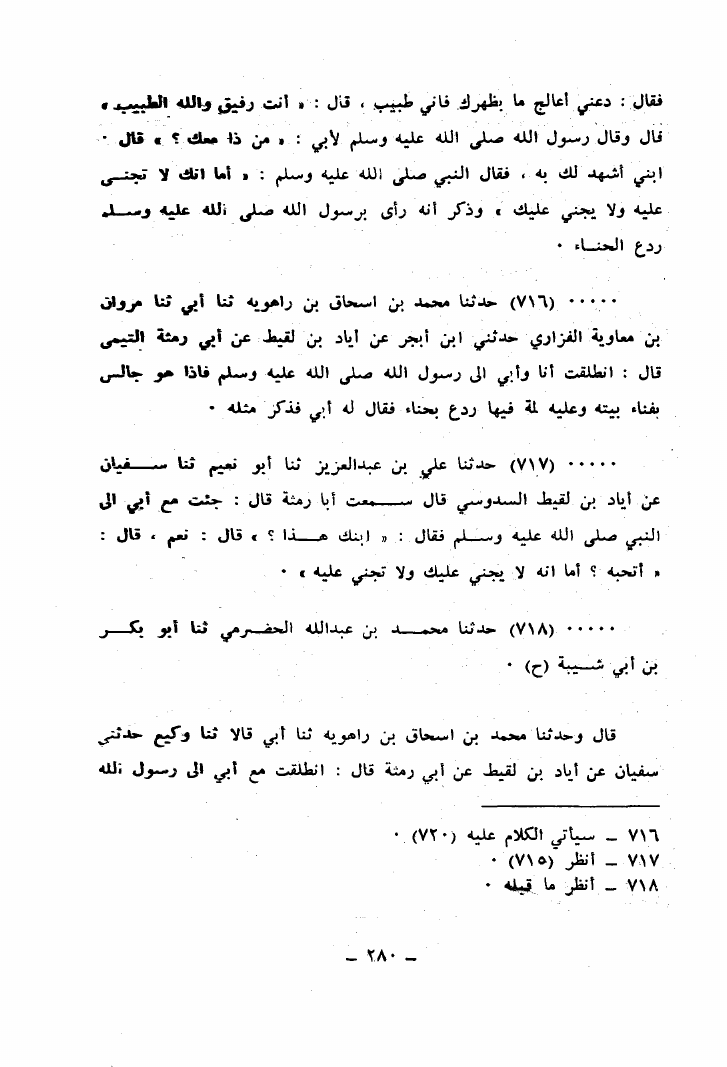 فقال : دعني أعالج ما بظهرك فاني طبيب ، قال : « أنت رفيق والله الطبيب »
قال وقال رسول الله صلى الله عليه وسلم لأبي : « من ذا معك ؟ » قال ·
ابني أشهد لك به ، فقال النبي صلى الله عليه وسلم : « أما انك لا تجنــي
عليه ولا يجني عليك » وذكر أنه رأى برسول الله صلى الله عليه وســلم
ردع الحنــاء ·
····· (٧١٦) حدثنا محمد بن اسحاق بن راهويه ثنا أبي ثنا مروان
بن معاوية الفزاري حدثني ابن أبجر عن أياد بن لقيط عن أبي رمثة التيمي
قال : انطلقت أنا وأبي الى رسول الله صلى الله عليه وسلم فاذا هو جالس
بفناء بيته وعليه لمة فيها ردع بحناء فقال له أبي فذكر مثله ·
····· (٧١٧) حدثنا علي بن عبدالعزيز ثنا أبو نعيم ثنا ســفيان
عن أياد بن لقيط السدوسي قال ســمعت أبا رمثة قال : جئت مع أبي الى
النبي صلى الله عليه وســلم فقال : « ابنك هــذا ؟ » قال : نعم ، قال :
« أتحبه ؟ أما انه لا يجني عليك ولا تجني عليه » ·
····· (٧١٨) حدثنا محمــد بن عبدالله الحضرمي ثنا أبو بكــر
بن أبي شــيبة (ح) ·
قال وحدثنا محمد بن اسحاق بن راهويه ثنا أبي قالا ثنا وكيع حدثني
سفيان عن أياد بن لقيط عن أبي رمثة قال : انطلقت مع أبي الى رسول الله
٧١٦ ـ سيأتي الكلام عليه (٧٢٠) ·
٧١٧ ـ أنظر (٧١٥) ·
٧١٨ ـ أنظر ما قبله ·
ـ ٢٨٠ ـ